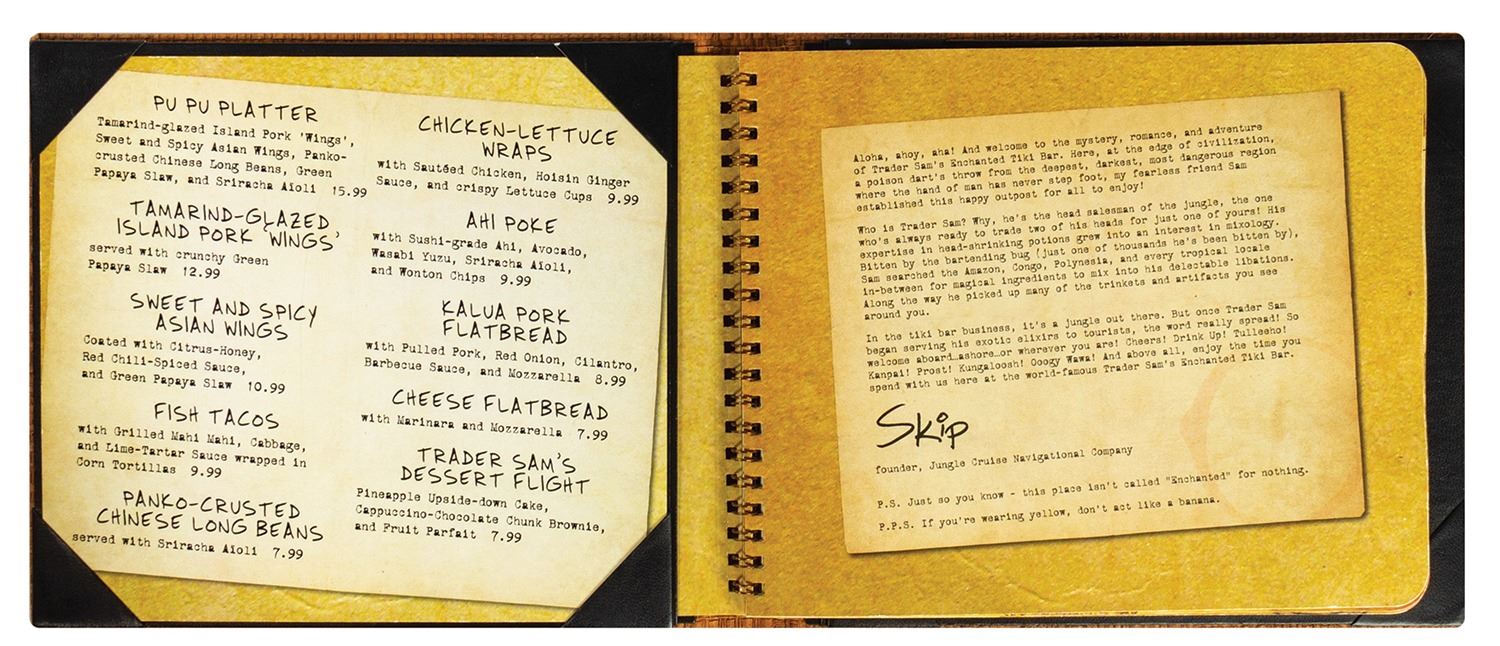 PU PU PLATTER
Tamarind-glazed Island Pork 'Wings',
Sweet and Spicy Asian Wings, Panko-
crusted Chinese Long Beans, Green
Papaya Slaw, and Sriracha Aïoli 15.99
TAMARIND-GLAZED
ISLAND PORK 'WINGS'
served with crunchy Green
Papaya Slaw 12.99
SWEET AND SPICY
ASIAN WINGS
Coated with Citrus-Honey,
Red Chili-Spiced Sauce,
and Green Papaya Slaw 10.99
FISH TACOS
with Grilled Mahi Mahi, Cabbage,
and Lime-Tartar Sauce wrapped in
Corn Tortillas 9.99
PANKO-CRUSTED
CHINESE LONG BEANS
served with Sriracha Aïoli 7.99
CHICKEN-LETTUCE
WRAPS
with Sautéed Chicken, Hoisin Ginger
Sauce, and crispy Lettuce Cups 9.99
AHI POKE
with Sushi-grade Ahi, Avocado,
Wasabi Yuzu, Sriracha Aïoli,
and Wonton Chips 9.99
KALUA PORK
FLATBREAD
with Pulled Pork, Red Onion, Cilantro,
Barbecue Sauce, and Mozzarella 8.99
CHEESE FLATBREAD
with Marinara and Mozzarella 7.99
TRADER SAM'S
DESSERT FLIGHT
Pineapple Upside-down Cake,
Cappuccino-Chocolate Chunk Brownie,
and Fruit Parfait 7.99
Aloha, ahoy, aha! And welcome to the mystery, romance, and adventure
of Trader Sam's Enchanted Tiki Bar. Here, at the edge of civilization,
a poison dart's throw from the deepest, darkest, most dangerous region
where the hand of man has never step foot, my fearless friend Sam
established this happy outpost for all to enjoy!
Who is Trader Sam? Why, he's the head salesman of the jungle, the one
who's always ready to trade two of his heads for just one of yours! His
expertise in head-shrinking potions grew into an interest in mixology.
Bitten by the bartending bug (just one of thousands he's been bitten by),
Sam searched the Amazon, Congo, Polynesia, and every tropical locale
in-between for magical ingredients to mix into his delectable libations.
Along the way he picked up many of the trinkets and artifacts you see
around you.
In the tiki bar business, it's a jungle out there. But once Trader Sam
began serving his exotic elixirs to tourists, the word really spread! So
welcome aboard…ashore…or wherever you are! Cheers! Drink Up! Tulleeho!
Kanpai! Prost! Kungaloosh! Ooogy Wawa! And above all, enjoy the time you
spend with us here at the world-famous Trader Sam's Enchanted Tiki Bar.
Skip
founder, Jungle Cruise Navigational Company
P.S. Just so you know - this place isn't called "Enchanted" for nothing.
P.P.S. If you're wearing yellow, don't act like a banana.